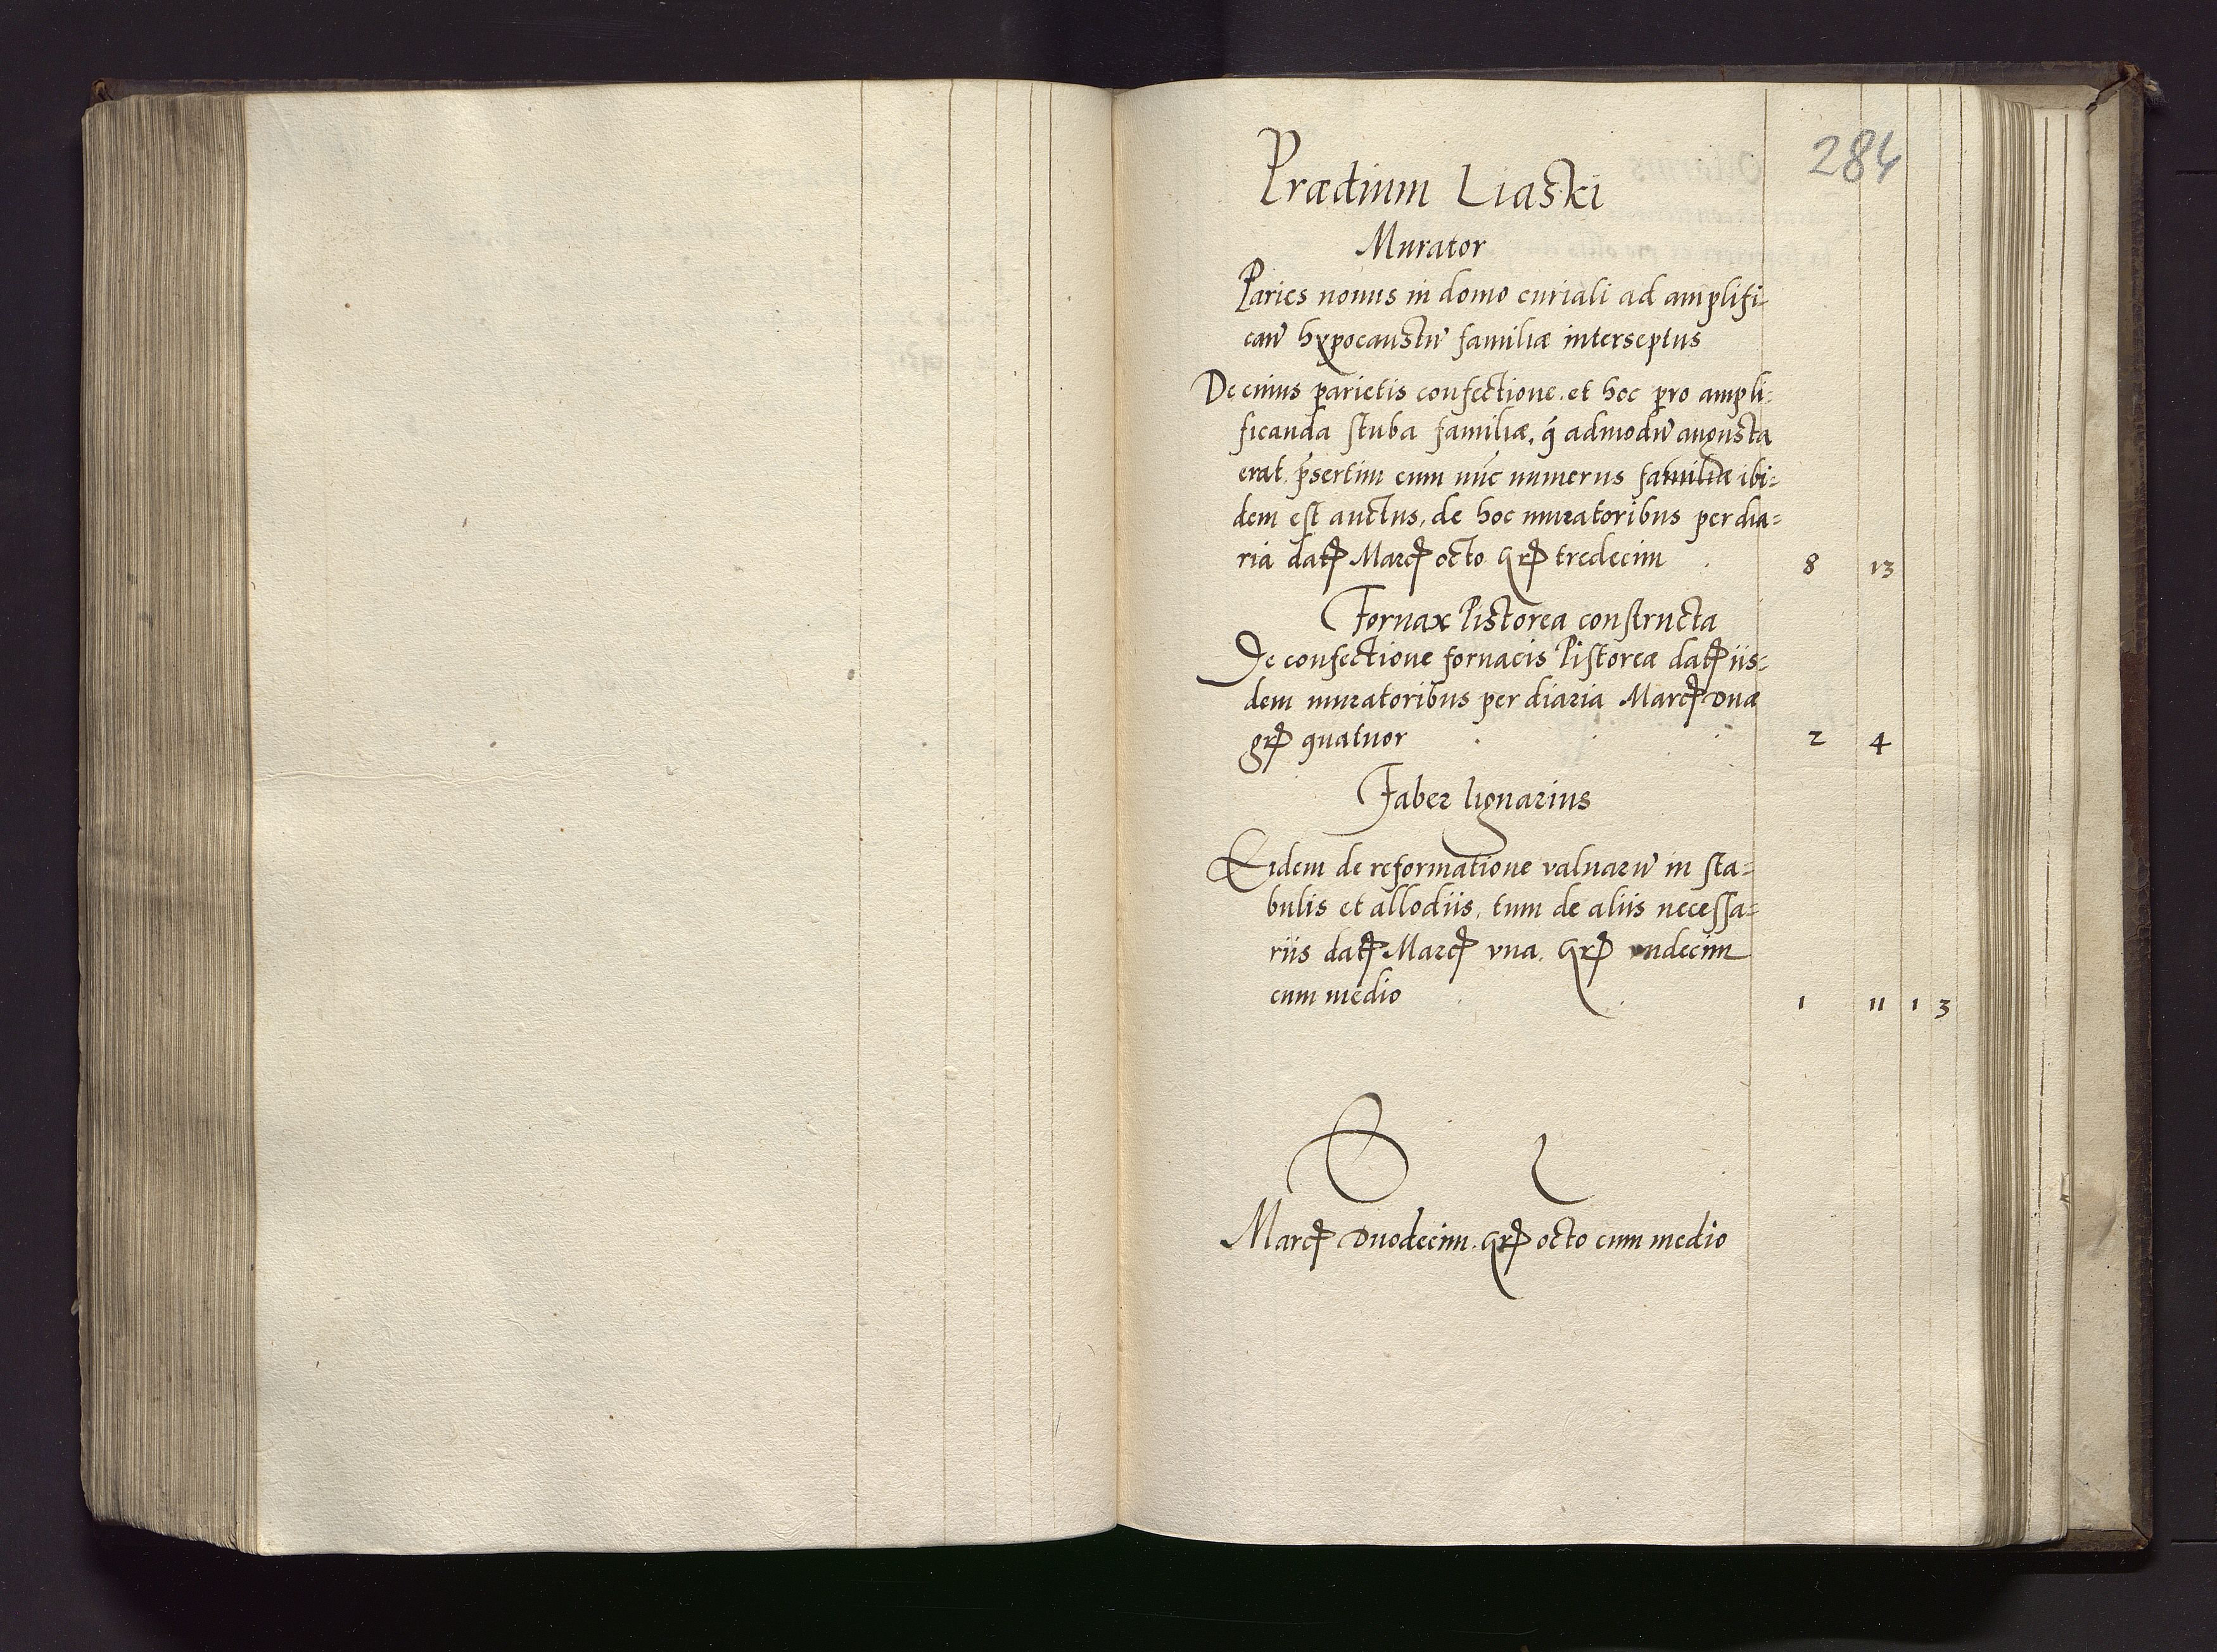 284
Prædium Liaski
Murator
Paries nouus in domo curiali ad amplifi-
can̄ hypocaustū familiæ interseptus
De cuius parietis confectione et hoc pro ampli-
ficanda stuba familiæ, q̄ admodū angusta
erat p̄sertim cum nūc numerus familiæ ibi-
dem est auctus, de hoc muratoribus per dia-
ria datꝭ Marcꝭ octo Grꝭ tredecim 8 13
Fornax Pistorea constructa
De confectione fornacis Pistoreæ datꝭ iis-
dem muratoribus per diaria Marcꝭ duæ
grꝭ quatuor 2 4
Faber lignarius
Eidem de reformatione valuarū in sta-
bulis et allodiis, tum de aliis necessa-
riis datꝭ Marcꝭ vna. Grꝭ vndecim
cum medio 1 11 1 3
Marcꝭ duodecim. Grꝭ octo cum medio